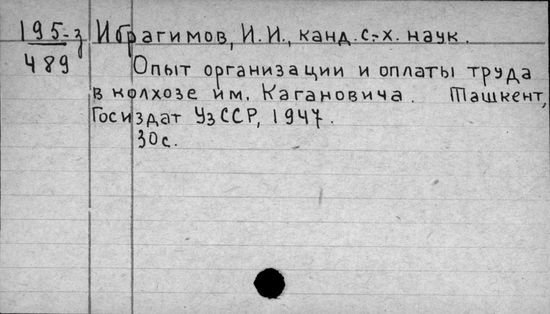 195-з Ибрагимов, И.И., канд. с.-х. наук.
489 Опыт организации и оплаты труда
в колхозе им. Кагановича. Ташкент,
Госиздат УзССР, 1947.
30с.